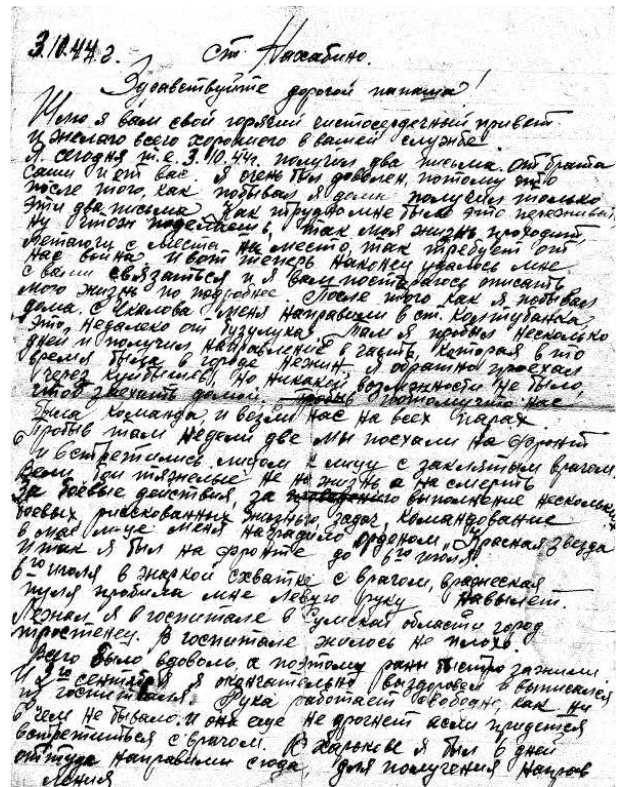 3.10.44г. ст. Нахабино.
Здравствуйте дорогой папаша!
Шлю я вам свой горячий чистосердечный привет
и желаю всего хорошего в вашей службе
Я сегодня т.е. 3.10.44г. получил два письма. от брата
саши и от вас. Я очень был доволен, потому что
после того, как побывал я дома получил только
эти два письма. Как трудно мне было это переживать
Ну чтож поделаешь, так моя жизнь проходит,
летаючи с места на место, так требует от
нас война. И вот теперь наконец удалось мне
с вами связаться и я вам постараюсь описать
мою жизнь по подробнее. После того как я побывал
дома. с Чкалова меня направили в ст. Колтубанка,
это недалеко от Бузулука. Там я пробыл несколько
дней и получил направление в часть, которая в то
время была в городе Нежин. Я обратно проехал
через куйбышев, но никакой возможности не было,
чтоб заехать домой. потому что нас
была команда, и везли нас на всех парах
Пробыв там недели две мы поехали на фронт
и встретились лицом к лицу с заклятым врагом.
Вели бои тяжелые не на жизнь а на смерть
За боевые действия, за выполнение нескольких
боевых рискованных жизнью, задач, командование
в мае м-це меня наградило орденом „Красная звезда
Итак я был на фронте до 6го июля.
6го июля в жаркой схватке с врагом, вражеская
пуля пробила мне левую руку навылет.
Лежал я в госпитале в Сумской области город
тростенец. В госпитале жилось не плохо.
Всего было вдоволь, а поэтому раны быстро зажили
И го сентября я окончательно выздоровел и выписался
из госпиталя. Рука работает свободно, как ни
в чем не бывало. И она еще не дрогнет если придется
встретиться с врагом. В Харькове я был 6 дней
оттуда направили сюда, для получения направ
ления